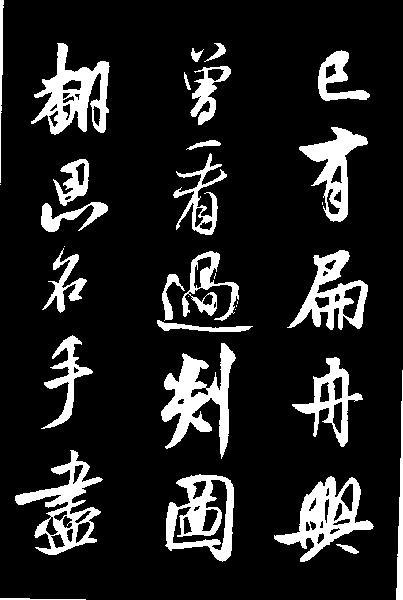 已有扁舟興
曾看過剡圖
翻思名手盡